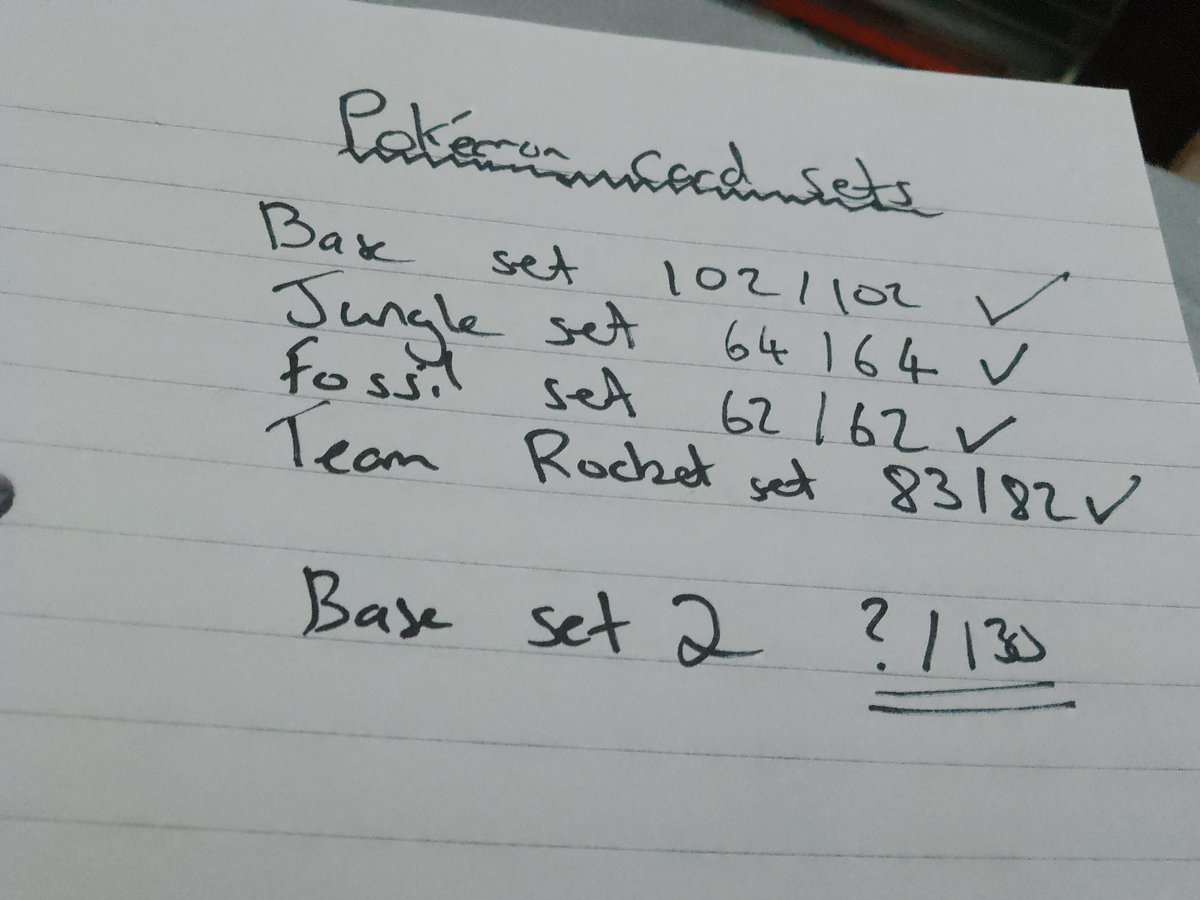 Pokémon Card sets
Base set 102/102 ✓
Jungle set 64/64 ✓
Fossil set 62/62 ✓
Team Rocket set 83/82 ✓
Base set 2 ?/130